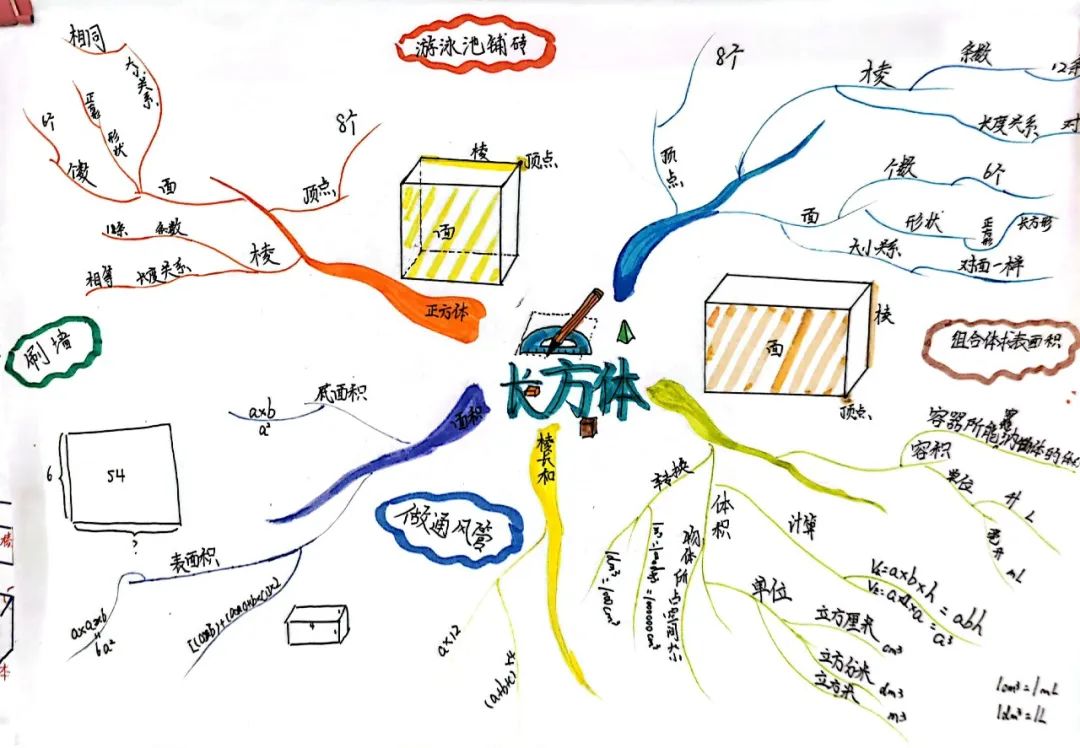 游泳池铺砖
相同
大小关系
正方形
形状
6个
个数
面
8个
顶点
12条
条数
棱
相等
长度关系
正方体
棱
顶点
面
8个
顶点
棱
条数
12条
长度关系
对
面
个数
6个
形状
正方形
长方形
大小关系
对面一样
刷墙
组合体求表面积
面
棱
顶点
长方体
面积
底面积
a×b
a²
6
54
?
表面积
6a²
做通风管
棱长和
a×12
(a+b+c)×4
转换
1dm³=1000cm³
体积
物体所占空间大小
计算
V长=a×b×h=abh
V正=a×a×a=a³
单位
立方厘米 cm³
立方分米 dm³
立方米 m³
容积
容器所能容纳物体的体
单位
升 L
毫升 mL
1cm³=1mL
1dm³=1L